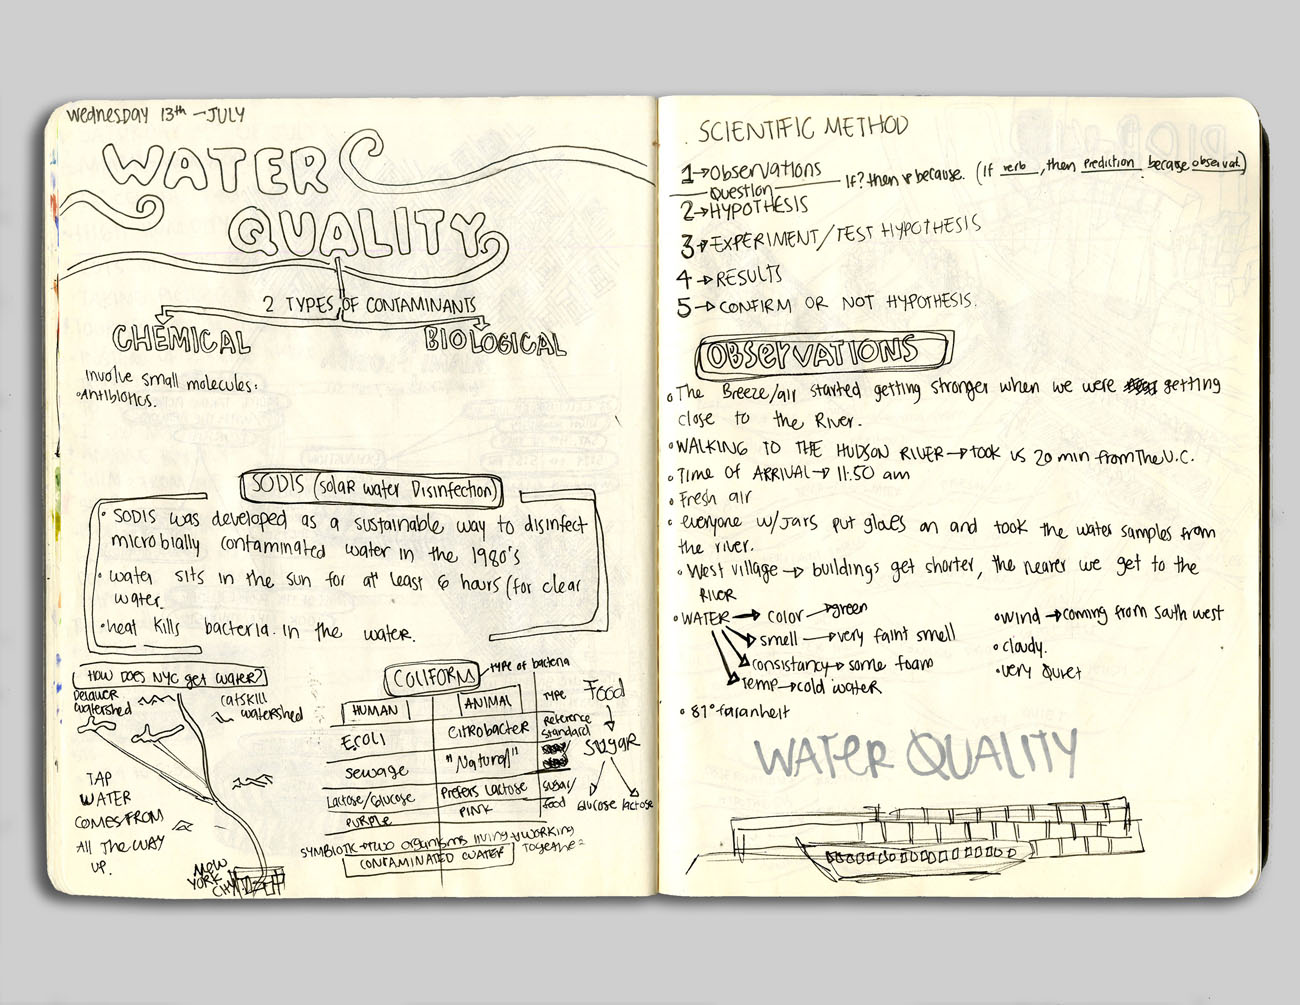 WEDNESDAY 13th → JULY
WATER
QUALITY
2 TYPES OF CONTAMINANTS
CHEMICAL
BIOLOGICAL
Involve small molecules:
• Antibiotics.
SODIS (solar water Disinfection)
• SODIS was developed as a sustainable way to disinfect
microbially contaminated water in the 1980's
• water sits in the sun for at least 6 hours (for clear
water.
• heat kills bacteria in the water.
HOW DOES NYC get water?
watershed
catskill
watershed
TAP
WATER
COMES FROM
All THE WAY
UP.
NEW
YORK
CITY
COLIFORM
TYPE OF bacteria
HUMAN
ANIMAL
TYPE
E.COLI
Citrobacter
Reference
Standard
sewage
"Natural"
Lactose/Glucose
Prefers Lactose
Sugar/
food
PURPLE
PINK
SYMBIOTIC → TWO organisms living + working
together
CONTAMINATED WATER
Food
SUGAR
Glucose
lactose
SCIENTIFIC METHOD
1→ Observations
Question
If? then & because. (If verb, then prediction because observat.)
2→ HYPOTHESIS
3→ EXPERIMENT/TEST HYPOTHESIS
4→ RESULTS
5→ CONFIRM OR NOT HYPOTHESIS.
OBSERVATIONS
• The Breeze/air started getting stronger when we were getting
close to the River.
• WALKING TO THE HUDSON RIVER → took us 20 min from The U.C.
• Time of ARRIVAL → 11:50 am
• Fresh air
• everyone w/Jars put gloves on and took the water samples from
the river.
• West village → buildings get shorter, the nearer we get to the
RIVER
• WATER → color → green
smell → very faint smell
consistancy → some foam
Temp → cold water
• wind → coming from south west
• cloudy.
• very Quiet
• 81° faranheit
WATER QUALITY